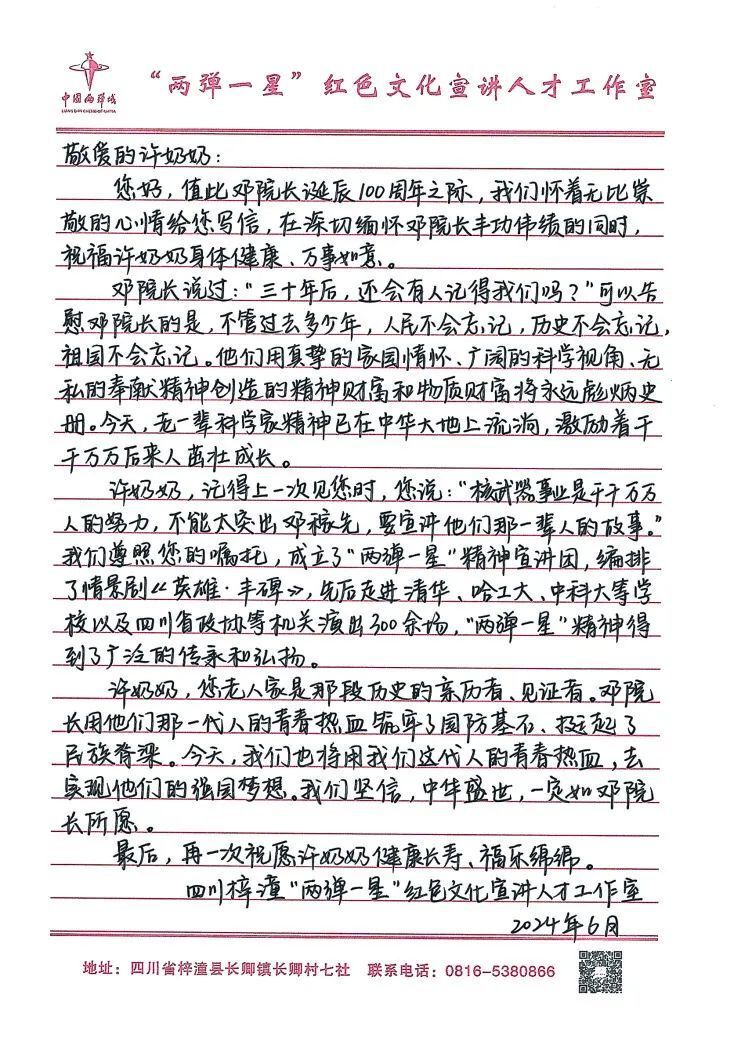 中国两弹城
LIANG DAN CHENG OF CHINA
“两弹一星”红色文化宣讲人才工作室
敬爱的许奶奶：
您好，值此邓院长诞辰100周年之际，我们怀着无比崇
敬的心情给您写信，在深切缅怀邓院长丰功伟绩的同时，
祝福许奶奶身体健康、万事如意。
邓院长说过：“三十年后，还会有人记得我们吗？”可以告
慰邓院长的是，不管过去多少年，人民不会忘记，历史不会忘记，
祖国不会忘记。他们用真挚的家国情怀、广阔的科学视角、无
私的奉献精神创造的精神财富和物质财富将永远彪炳史
册。今天，老一辈科学家精神已在中华大地上流淌，激励着千
千万万后来人茁壮成长。
许奶奶，记得上一次见您时，您说：“核武器事业是千千万万
人的努力，不能太突出邓稼先，要宣讲他们那一辈人的故事。”
我们遵照您的嘱托，成立了“两弹一星”精神宣讲团，编排
了情景剧《英雄·丰碑》，先后走进清华、哈工大、中科大等学
校以及四川省政协等机关演出300余场，“两弹一星”精神得
到了广泛的传承和弘扬。
许奶奶，您老人家是那段历史的亲历者、见证者。邓院
长用他们那一代人的青春热血筑牢了国防基石、挺起了
民族脊梁。今天，我们也将用我们这代人的青春热血，去
实现他们的强国梦想。我们坚信，中华盛世，一定如邓院
长所愿。
最后，再一次祝愿许奶奶健康长寿、福乐绵绵。
四川梓潼“两弹一星”红色文化宣讲人才工作室
2024年6月
地址：四川省梓潼县长卿镇长卿村七社 联系电话：0816-5380866